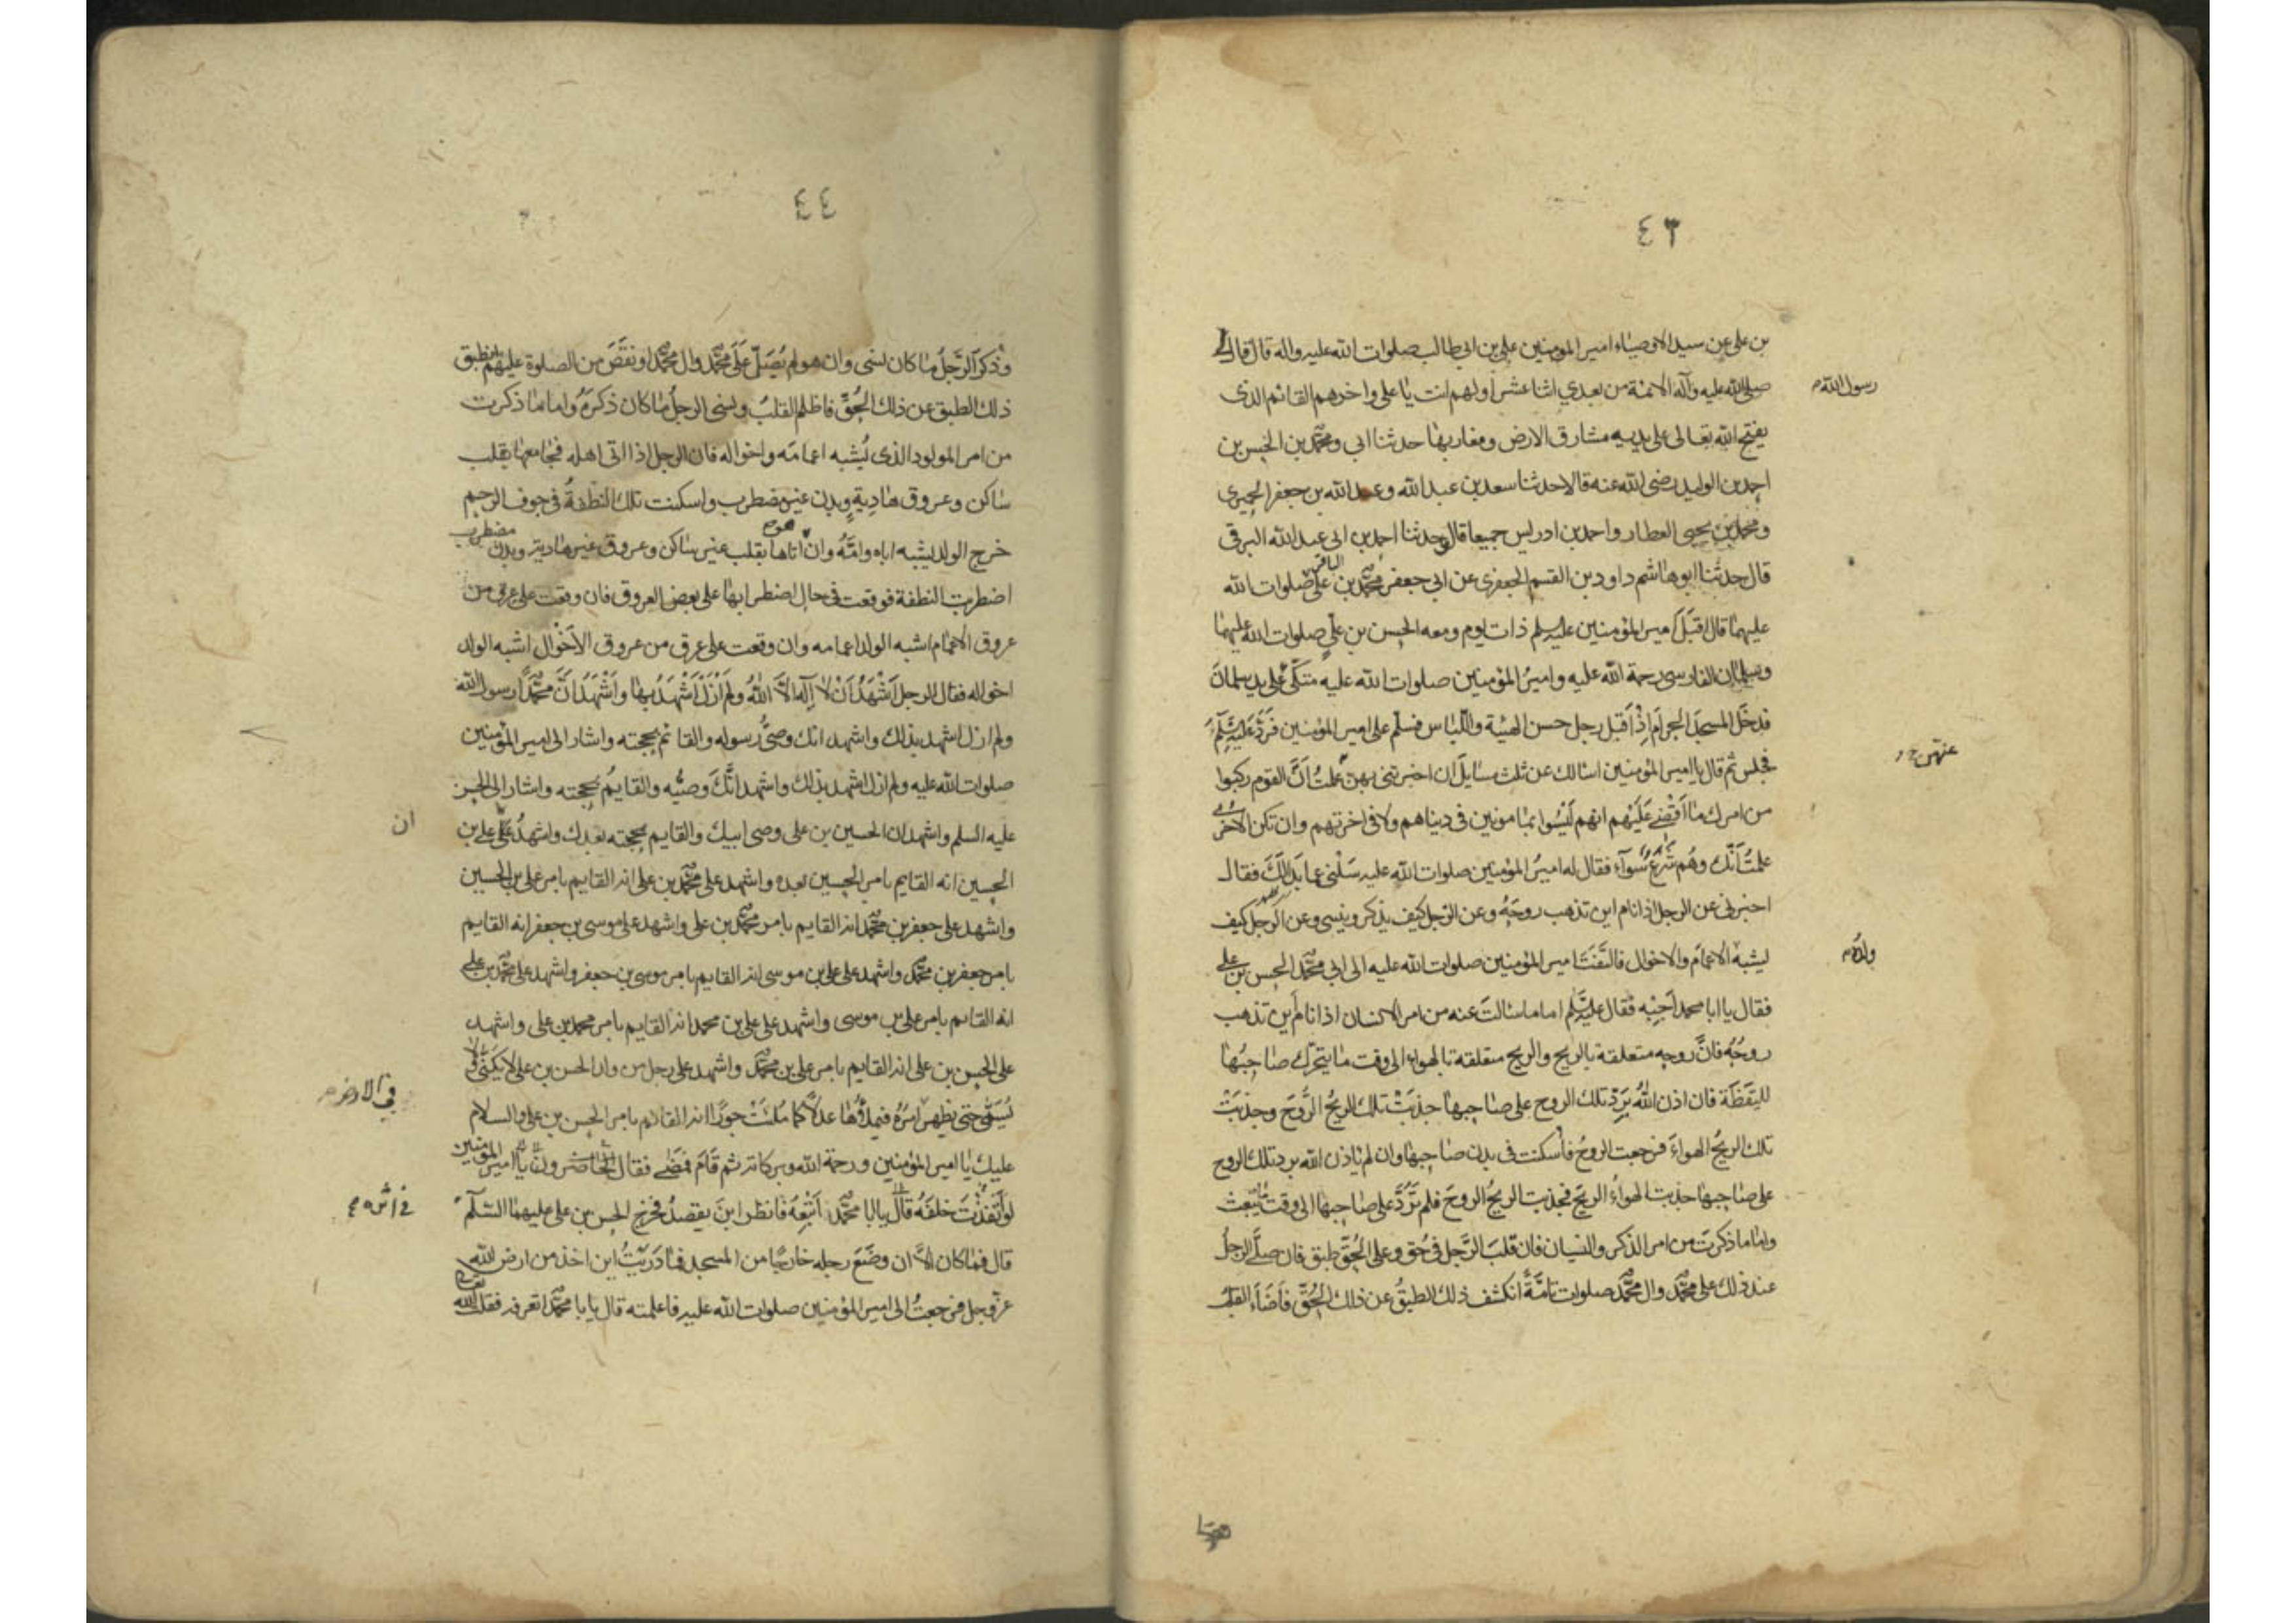 ٤٣
بن علي عن سيد الاوصياء امير المومنين علي بن ابي طالب صلوات الله عليه واله قال قال
رسول الله
صلى الله عليه وآله الائمة من بعدي اثنا عشر اولهم انت يا علي واخرهم القائم الذى
يفتح الله تعالى على يديه مشارق الارض ومغاربها حدثنا ابي ومحمد بن الحسن بن
احمد بن الوليد رضى الله عنه قالا حدثنا سعد بن عبد الله وعبد الله بن جعفر الحميرى
ومحمد بن يحيى العطار واحمد بن ادريس جميعا قال وحدثنا احمد بن ابى عبد الله البرقى
قال حدثنا ابو هاشم داود بن القسم الجعفرى عن ابي جعفر محمد بن على الباقر صلوات الله
عليهما قال اقبَل امير المؤمنين عليه السلم ذات يوم ومعه الحسن بن علي صلوات الله عليهما
وسلمان الفارسى رحمة الله عليه وامير المؤمنين صلوات الله عليه متكّى على يد سلمان
فدخَل المسجدَ الحرامَ اِذْ اَقبل رجل حسن الهيئة واللّباس فسلّم على امير المؤمنين فَرَدَّ عَليه السَّلَم
فجلس ثم قال يا امير المؤمنين اسالك عن ثلث مسايل ان اخبرتنى بهن علمتُ اَنَّ القوم ركبوا
عنهن
من امرك ما اَقْضِى عَلَيْهم انهم لَيْسُوا بمامونين فى دنياهم ولا فى اخرتهم وان تكن الاخرى
علمتُ اَنَّك وهُم شَرَعٌ سَوآء فقال له اميرُ المؤمنين صلوات الله عليه سَلْنى عما بَدَا لَكَ فقال
اخبرنى عن الرجل اذا نام اين تذهب روحَهُ وعن الرّجل كيف يذكر وينسى وعن الرّجل كيف
ولدُه
يشبه الاعمامَ والاخوال فالتَفَتَ امير المؤمنين صلوات الله عليه الى ابى محمّد الحسن بن على
فقال يا ابا محمد اَجِبْه فقال عليه السَّلَم اما ما سالتَ عنه من امر الانسان اذا نام اَين تذهب
روحُهُ فانَّ روحه متعلقة بالريح والريح متعلقة بالهواء الى وقت ما يتحرّك صاحِبُها
لليَقَظَة فان اذن اللهُ بِرَدّ تلك الروح على صاحِبها جذبَتْ تلك الريحُ الرّوحَ وجذبَتْ
تلك الريحُ الهواءَ فرجعت الروحُ فاُسكنت فى بدن صاحِبها وان لم ياذن الله برد تلك الروح
على صاحبِها جذبت الهواءُ الريحَ فجذبت الريحُ الروحَ فلم تُرَدَّ على صاحِبها الى وقت ما يُبعث
واما ما ذكرتَ من امر الذكر والنسيان فان قلبَ الرَّجل فى حُق وعلى الحُقّ طبق فان صلّى الرجلُ
عند ذلك على محمّد وال محمّد صلوات تامَّةً انكشف ذلك الطبقُ عن ذلك الحُقّ فَاَضَآءَ القلبُ
٤٤
وذكر الرَّجلُ ما كان نسى وان هو لم يُصَلّ عَلَى محمّد وال محمّد او نقَّصَ من الصلوة عليهم انطبق
ذلك الطبق عن ذلك الحُقّ فاظلم القلبُ ونسى الرجلُ ما كان ذكرهُ واما ما ذكرت
من امر المولود الذى يُشبه اعمامَه واخواله فان الرجل اذا اتى اهله فجامعها بقلب
ساكن وعروق هادِيةٍ وبدن غير مضطرب واسكنت تلك النطفةُ فى جوف الرحم
خرج الولد يشبه اباه وامَّهُ وان هو اتاها بقلب غير ساكن وعروق غير هادية وبدن مضطرب
اضطربت النطفة فوقعت فى حال اضطرابها على بعض العروق فان وقعت على عرق من
عروق الاعمام اشبه الولد اعمامه وان وقعت على عرق من عروق الاَخْوال اشبه الولد
اخواله فقال الرجل اَشْهَدُ اَنْ لا اِلَهَ اِلاَّ اللهُ ولم اَزَلْ اَشْهَدُ بها واَشْهَدُ اَنَّ محمّداً رسول الله
ولم ازل اشهد بذلك واشهد انك وصىُّ رسوله والقائم بحجته واشار الى امير المؤمنين
صلوات الله عليه ولم ازل اشهد بذلك واشهد انَّكَ وصيُّه والقايمُ بحجته واشار الى الحسن
ان
عليه السلم واشهد ان الحسين بن على وصى ابيك والقايم بحجته بعدك واشهدُ على على بن
الحسين انه القايم بامر الحسين بعده واشهد على محمّد بن على انه القايم بامر على بن الحسين
واشهد على جعفر بن محمّد انه القايم بامر محمّد بن على واشهد على موسى بن جعفر انه القايم
بامر جعفر بن محمّد واشهد على على بن موسى انه القايم بامر موسى بن جعفر واشهد على محمّد بن على
انه القايم بامر على بن موسى واشهد على على بن محمد انه القايم بامر محمد بن على واشهد
على الحسن بن على انه القايم بامر على بن محمّد واشهد على رجل من ولد الحسن بن على لا يكَنَّى ولا
فى الارض
يُسَمَّى حتى يظهر امرُهُ فيملأُها عدلاً كما مُلئَتْ جورًا انه القائم بامر الحسن بن على والسلام
عليك يا امير المؤمنين ورحمة الله وبركاته ثم قَامَ فمَضَى فقال الحاضرون يا امير المؤمنين
فى اثره
لو اَنفَذْتَ خلفَهُ قال يا ابا محمّد اَتْبِعهُ فانظر اينَ يقصدُ فخرج الحسن بن على عليهما السّلم
قال فما كان الاَّ ان وضَعَ رجله خارجًا من المسجد فما دَرَيْتُ اين اخذ من ارض الله
عزّوجل فرجعتُ الى امير المؤمنين صلوات الله عليه فاعلمته قال يا ابا محمّد اتعرفه فقلت الله